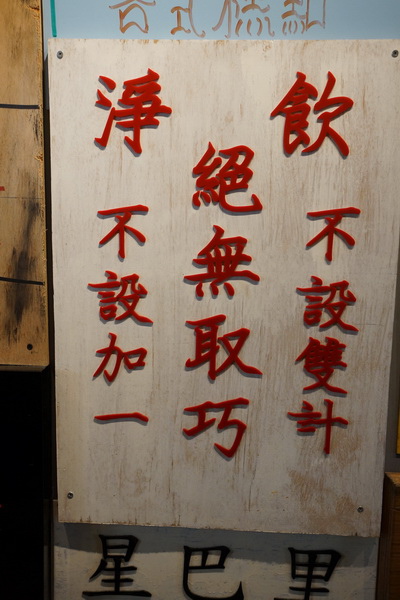 飲 不設雙計
絕無取巧
淨 不設加一
星巴里